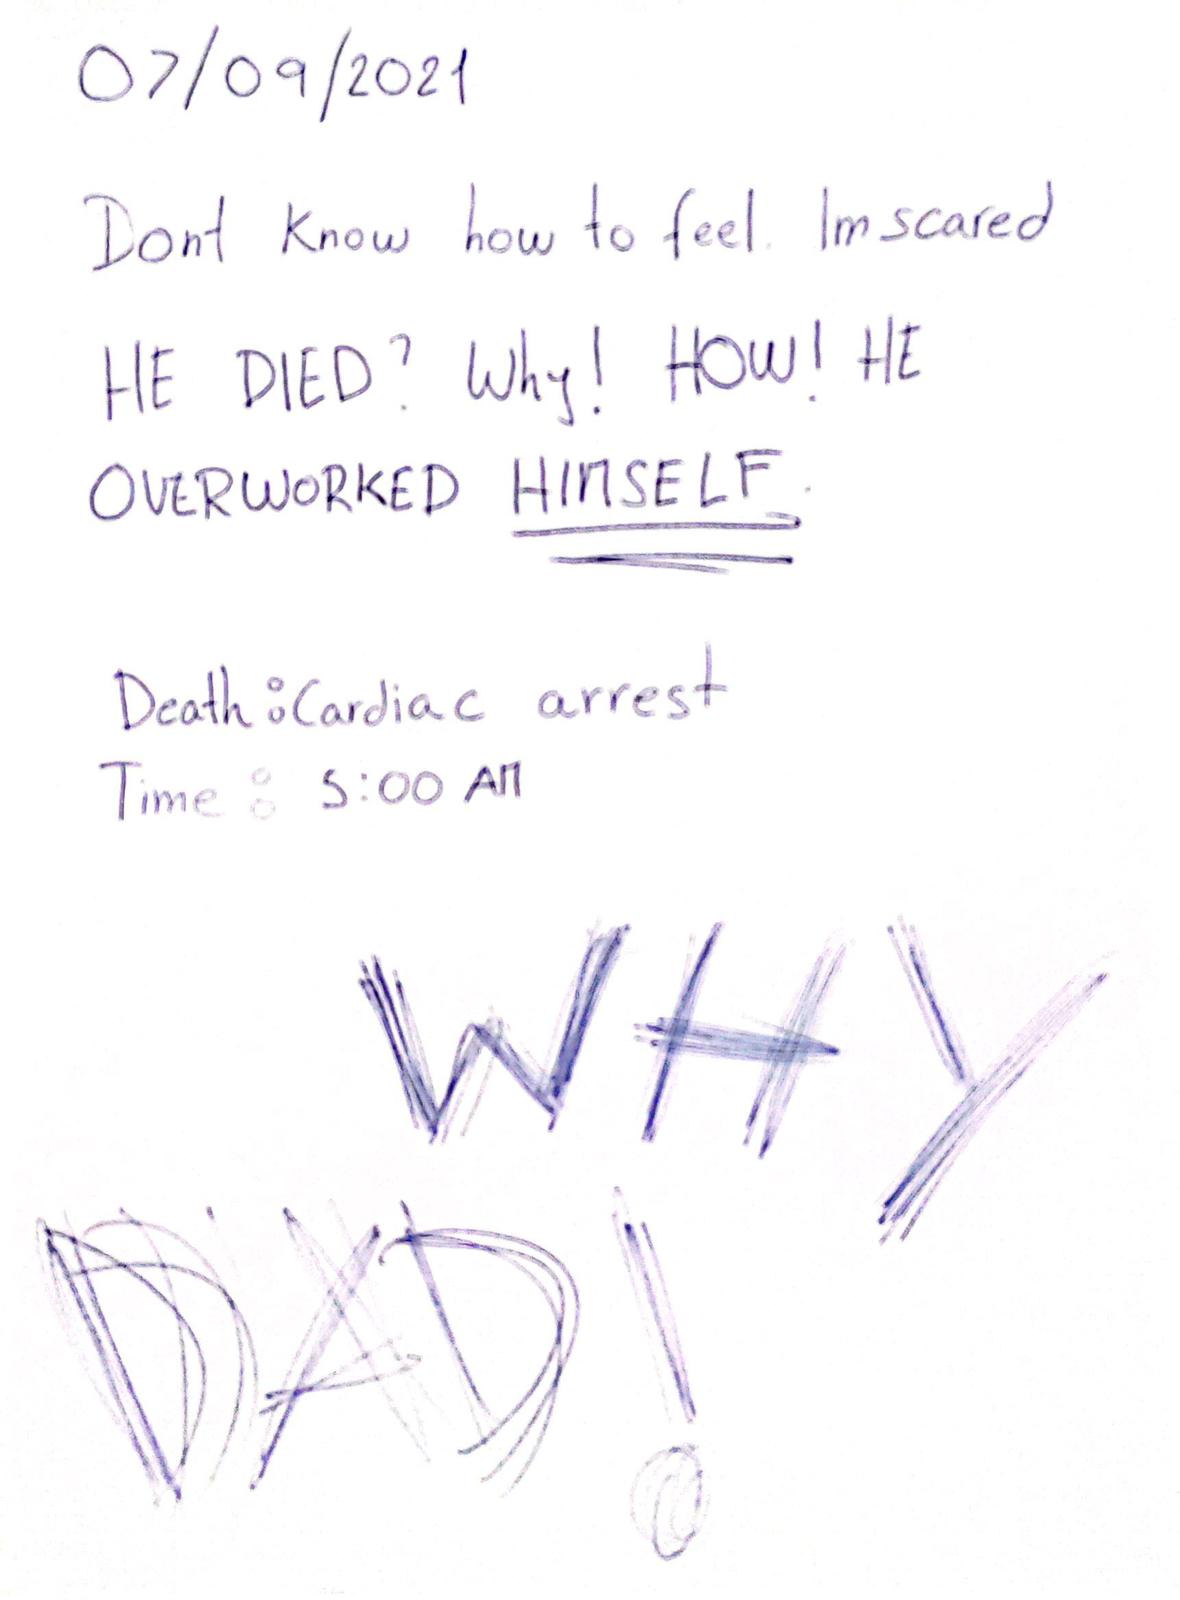 07/09/2021
Dont Know how to feel. Im scared
HE DIED? Why! HOW! HE
OVERWORKED HIMSELF.
Death:Cardiac arrest
Time: 5:00 AM
WHY
DAD!